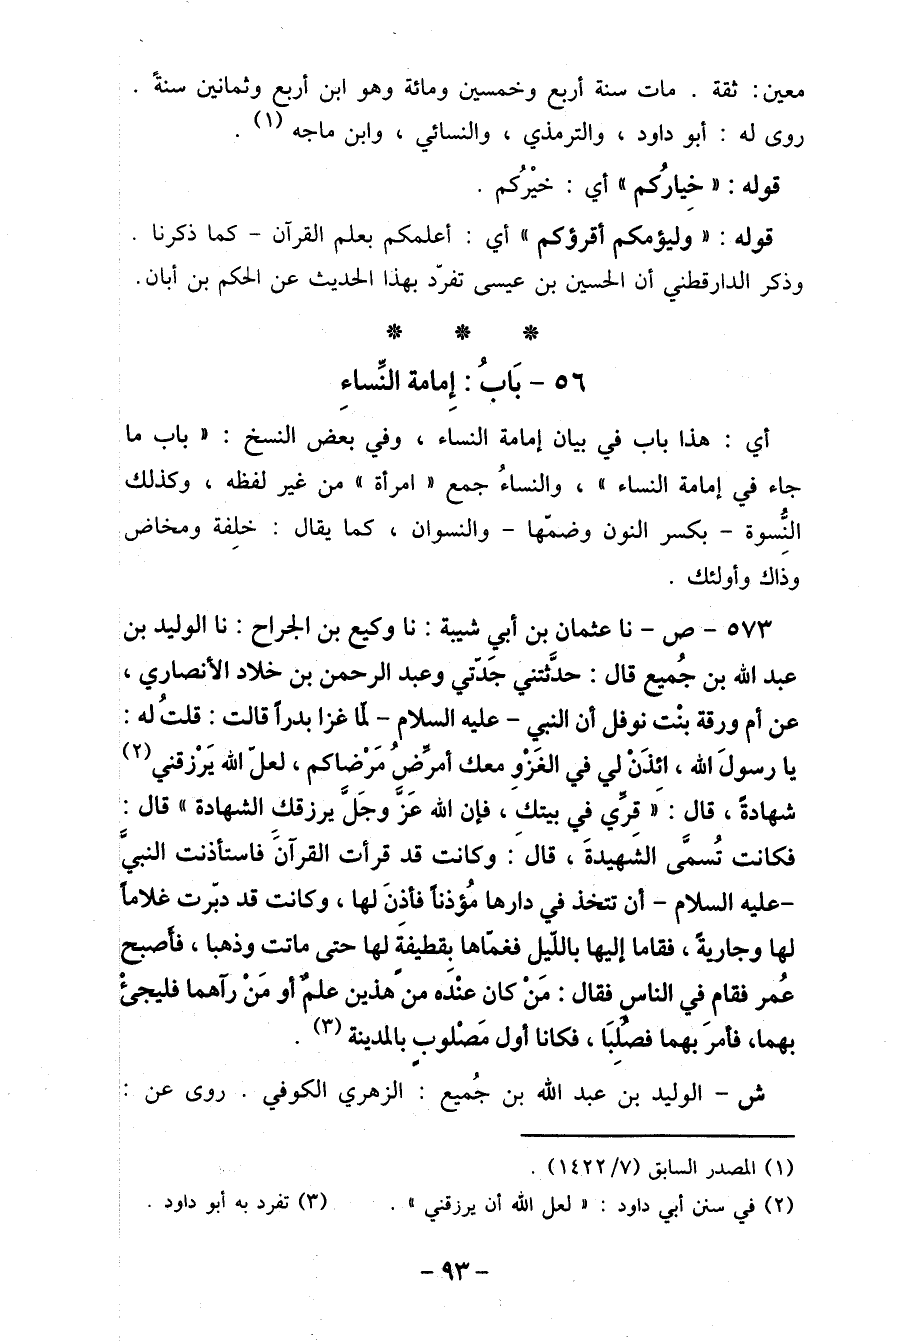 معين: ثقة . مات سنة أربع وخمسين ومائة وهو ابن أربع وثمانين سنةً .
روى له : أبو داود ، والترمذي ، والنسائي ، وابن ماجه (١) .
قوله : « خِيارُكم » أي : خيْرُكم .
قوله : « وليؤمكم أقرؤكم » أي : أعلمكم بعلم القرآن – كما ذكرنا .
وذكر الدارقطني أن الحسين بن عيسى تفرّد بهذا الحديث عن الحكم بن أبان.
* * *
٥٦ – بَابُ : إِمامة النِّساءِ
أي : هذا باب في بيان إمامة النساء ، وفي بعض النسخ : « باب ما
جاء في إمامة النساء » ، والنساءُ جمع « امرأة » من غير لفظه ، وكذلك
النُِّسوة – بكسر النون وضمّها – والنسوان ، كما يقال : خلِفة ومخاض
وذاك وأولئك .
٥٧٣ – ص – نا عثمان بن أبي شيبة : نا وكيع بن الجراح : نا الوليد بن
عبد الله بن جُميع قال : حدَّثتني جَدّتي وعبد الرحمن بن خلاد الأنصاري ،
عن أم ورقة بنْت نوفل أن النبي – عليه السلام – لمّا غزا بدراً قالت : قلتُ له :
يا رسولَ الله ، ائذَنْ لي في الغَزْوِ معك أمرِّضُ مَرْضاكم ، لعلّ الله يَرْزقني (٢)
شهادةً ، قال : « قرِّي في بيتكِ ، فإن الله عَزَّ وجَلَّ يرزقك الشهادة » قال :
فكانت تُسمَّى الشهيدةَ ، قال : وكانت قد قرأت القرآنَ فاستأذنت النبيَّ
–عليه السلام – أن تتخذ في دارها مُؤذناً فأذنَ لها ، وكانت قد دبّرت غلاماً
لها وجاريةً ، فقاما إليها بالليل فغمّاها بِقطيفةٍ لها حتى ماتت وذهبا ، فأصبح
عُمر فقام في الناسِ فقال : مَنْ كان عنْده من هذين علمٌ أو مَنْ رآهما فليجئْ
بهما، فأمرَ بهما فصُلِبَا ، فكانا أول مَصْلوبٍ بالمدينة (٣) .
ش – الوليد بن عبد الله بن جُميع : الزهري الكوفي . روى عن :
(١) المصدر السابق (١٤٢٢/٧) .
(٢) في سنن أبي داود : « لعل الله أن يرزقني » . (٣) تفرد به أبو داود .
– ٩٣ –